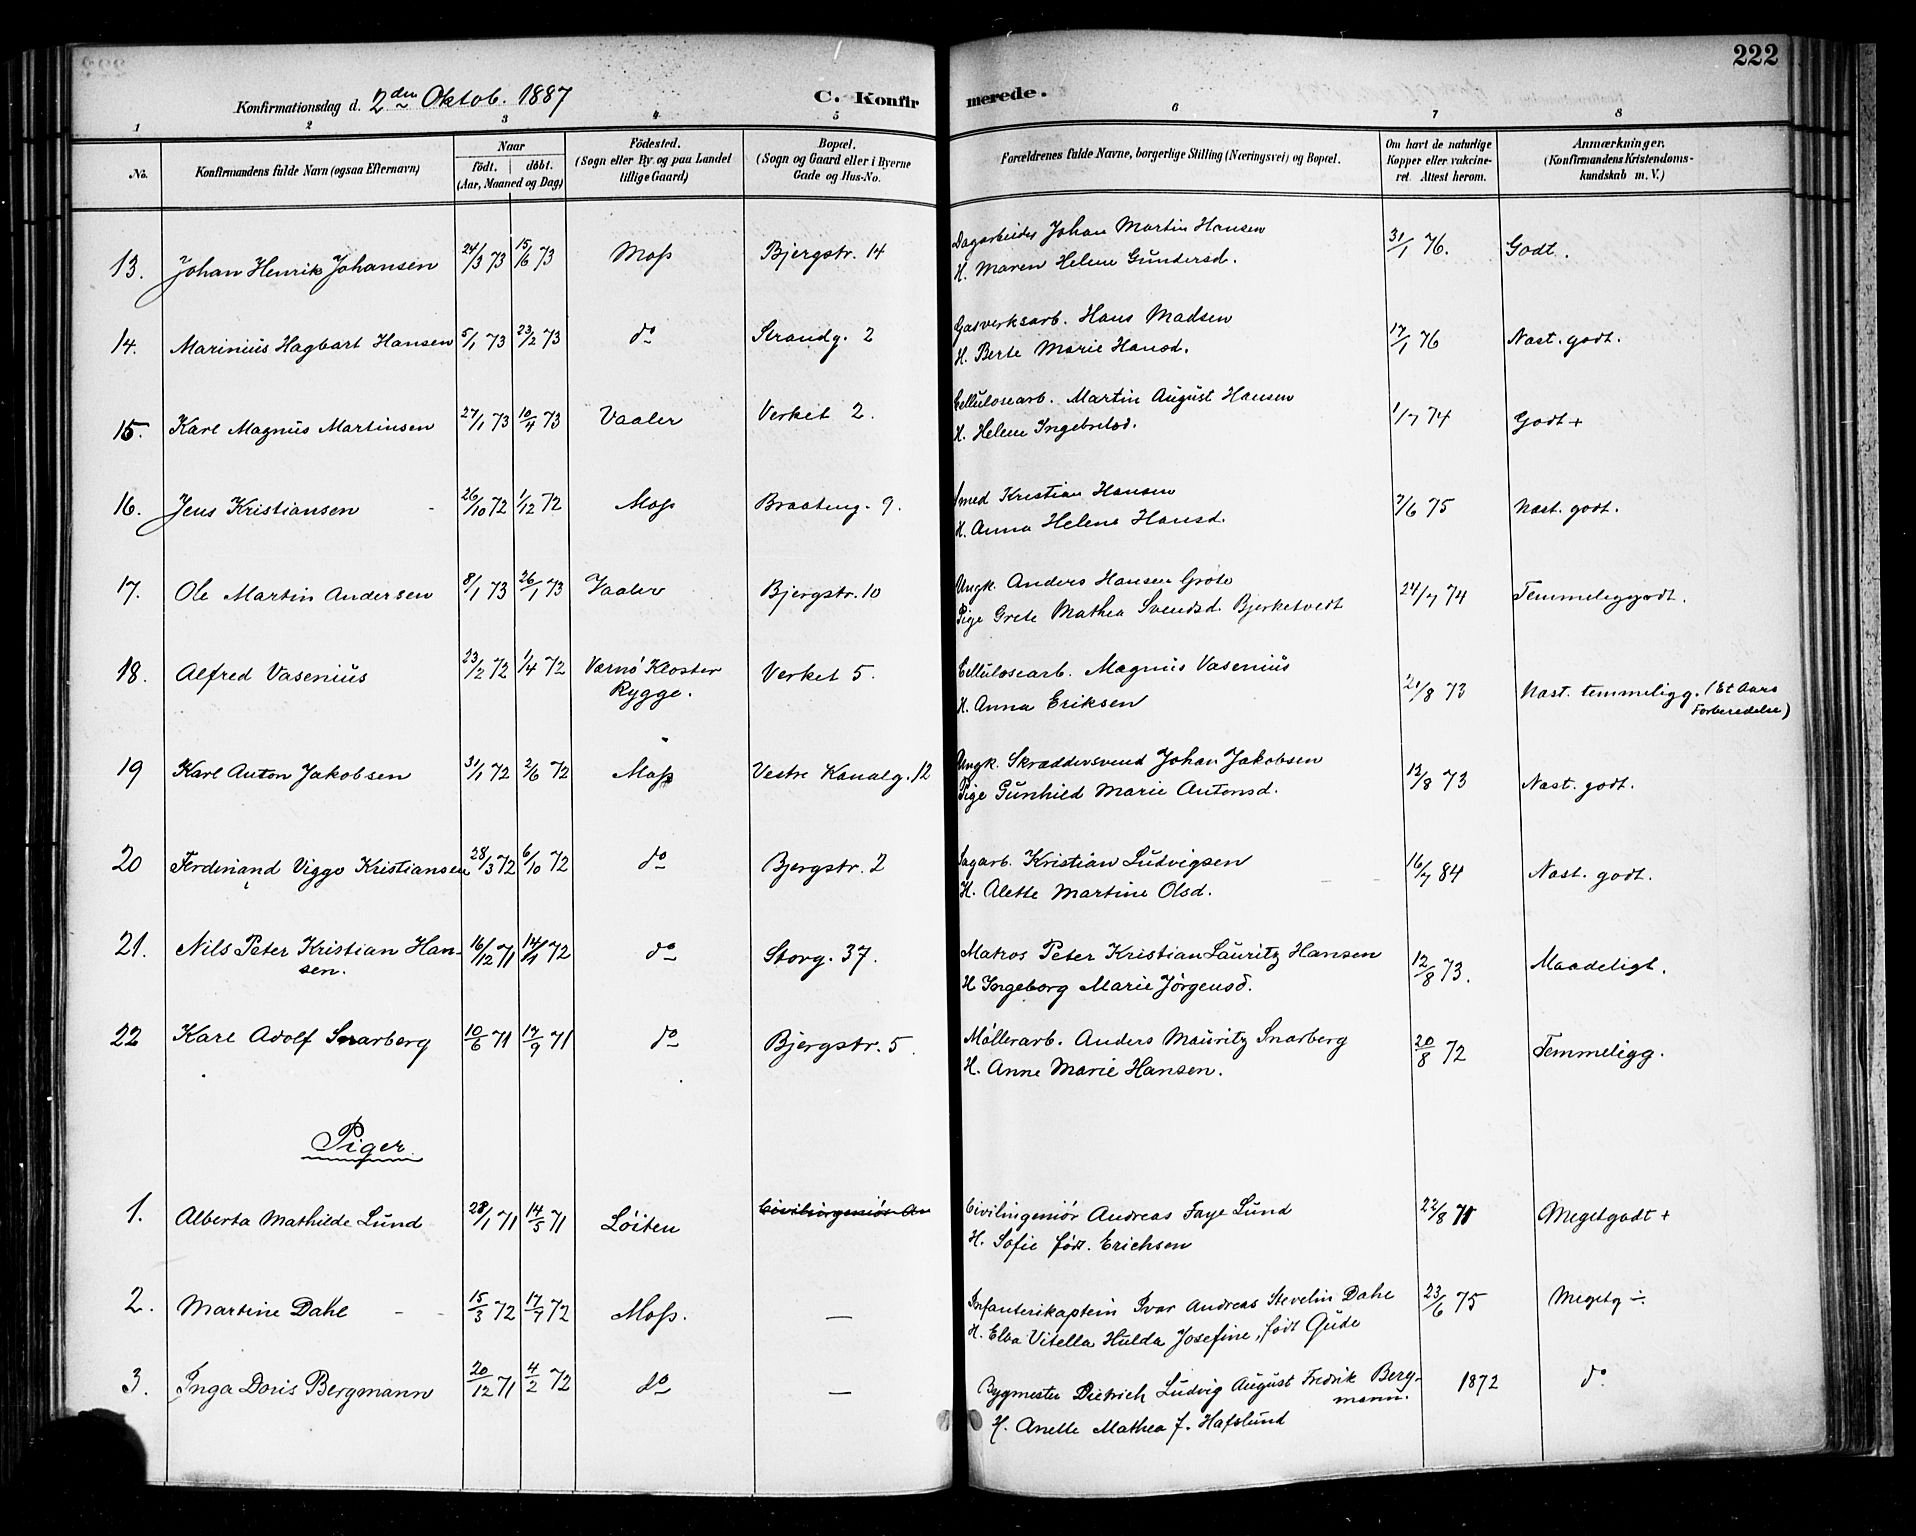 222
Konfirmationsdag d. 2den Oktob. 1887 C. Konfirmerede.
1 2 3 4 5 6 7 8
No. Konfirmandens fulde Navn (ogsaa Efternavn) Naar födt. döbt. (Aar, Maaned og Dag) Födested. (Sogn eller By og paa Landet tillige Gaard) Bopæl. (Sogn og Gaard eller i Byerne Gade og Hus-No. Forældrenes fulde Navne, borgerlige Stilling (Næringsvei) og Bopæl. Om havt de naturlige Kopper eller vakcineret. Attest herom. Anmærkninger. (Konfirmandens Kristendomskundskab m. V.)
13. Johan Henrik Johansen 24/3 73 15/6 73 Moss Bjergstr. 14 Dagarbeider Johan Martin Hansen 31/1 76. Godt.
H. Maren Helene Gundersd.
14. Marinius Hagbart Hansen 5/1 73 23/2 73 do Strandg. 2 Gasverksarb. Hans Madsen 17/1 76 Næst. godt.
H. Berte Marie Hansd.
15. Karl Magnus Martinsen 27/1 73 10/4 73 Vaaler Verket 2. Cellulosearb. Martin August Hansen 1/7 74 Godt +
H. Helene Ingebretsd.
16. Jens Kristiansen 26/10 72 1/12 72 Moss Braateng. 9. Smed Kristian Hansen 7/6 75 Næst. godt.
H. Anna Helene Hansd.
17. Ole Martin Andersen 8/1 73 26/1 73 Vaaler Bjergstr. 10 Ungk. Anders Hansen Grote 24/7 74 Temmeliggodt.
Pige Grete Mathea Svendsd. Bjerketvedt
18. Alfred Vasenius 23/2 72 1/4 72 Værnö Kloster Rygge. Verket 5. Cellulosearb. Magnus Vasenius 21/8 73 Næst. temmeligg. (Et Aars Forberedelse)
H. Anna Eriksen
19 Karl Anton Jakobsen 31/1 72 2/6 72 Moss Vestre Kanalg. 12 Ungk. Skræddersvend Johan Jakobsen 12/8 73 Næst. godt.
Pige Gunhild Marie Antonsd.
20 Ferdinand Viggo Kristiansen 28/3 72 6/10 72 do Bjergstr. 2 Sagarb. Kristian Ludvigsen 16/7 84 Næst. godt.
H. Alette Martine Olsd.
21. Nils Peter Kristian Hansen. 16/12 71 14/1 72 do Storg. 37. Matros Peter Kristian Lauritz Hansen 12/8 73. Maadeligt.
H Ingeborg Marie Jörgensd.
22 Karl Adolf Snarberg 10/6 71 17/9 71 do Bjergstr. 5. Möllerarb. Anders Mauritz Snarberg 20/8 72 Temmeligg.
H. Anne Marie Hansen.
Piger
1. Alberta Mathilde Lund 28/1 71 14/5 71 Löiten Civilingeniör An Civilingeniör Andreas Faye Lund 22/8 71 Megetgodt +
H. Sofie födt. Erichsen
2. Martine Dahl - - 15/3 72 17/7 72 Moss. — Infanterikaptein Ivar Andreas Stevelin Dahl 23/6 75 Megetg ÷
H. Elva Vitella Hulda Josefine, födt Gude
3. Inga Doris Bergmann 20/12 71 4/2 72 do — Bygmester Dietrich Ludvig August Fredrik Bergmann. 1872 do
H. Anette Mathea f. Hafslund